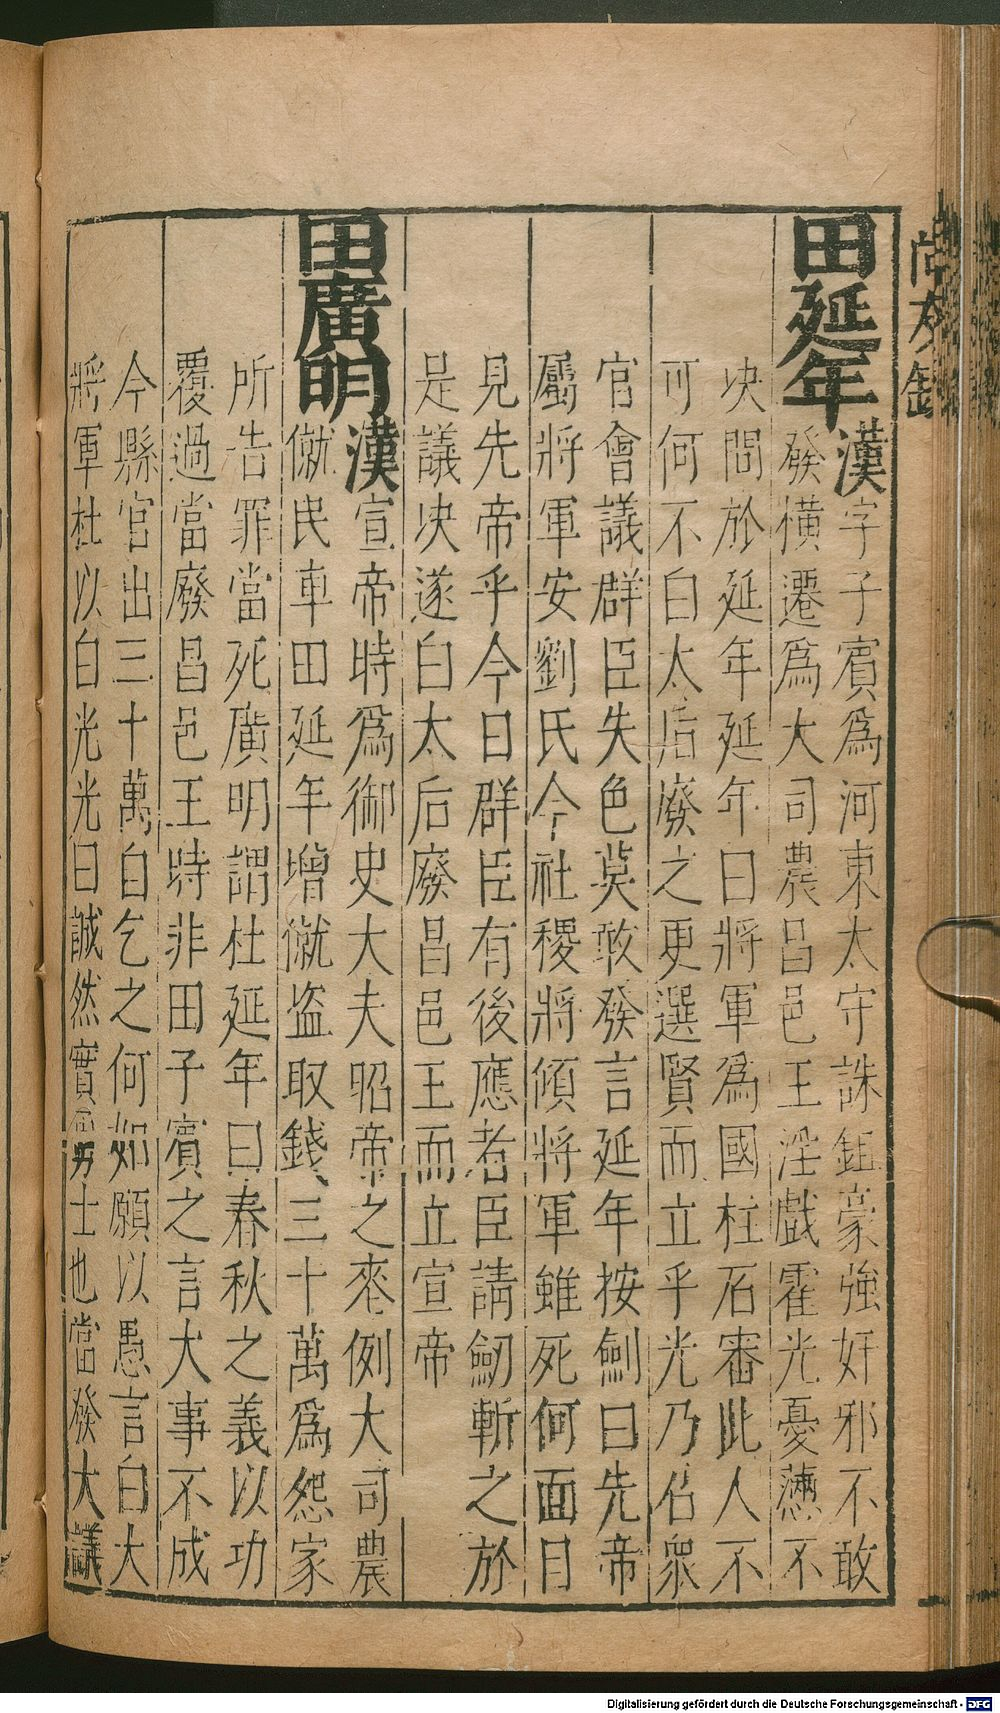 尚友錄
田延年漢字子賓爲河東太守誅鉏豪強奸邪不敢
發橫遷爲大司農昌邑王淫戲霍光憂懣不
决問於延年延年曰將軍爲國柱石審此人不
可何不白太后廢之更選賢而立乎光乃召衆
官會議群臣失色莫敢發言延年按劍曰先帝
屬將軍安劉氏今社稷將傾將軍雖死何面目
見先帝乎今日群臣有後應者臣請劒斬之於
是議决遂白太后廢昌邑王而立宣帝
田廣明漢宣帝時爲御史大夫昭帝之喪例大司農
僦民車田延年增僦盜取錢三十萬爲怨家
所告罪當死廣明謂杜延年曰春秋之義以功
覆過當廢昌邑王時非田子賓之言大事不成
今縣官出三十萬自乞之何如願以愚言白大
將軍杜以白光光曰誠然實勇士也當發大議
Digitalisierung gefördert durch die Deutsche Forschungsgemeinschaft - DFG